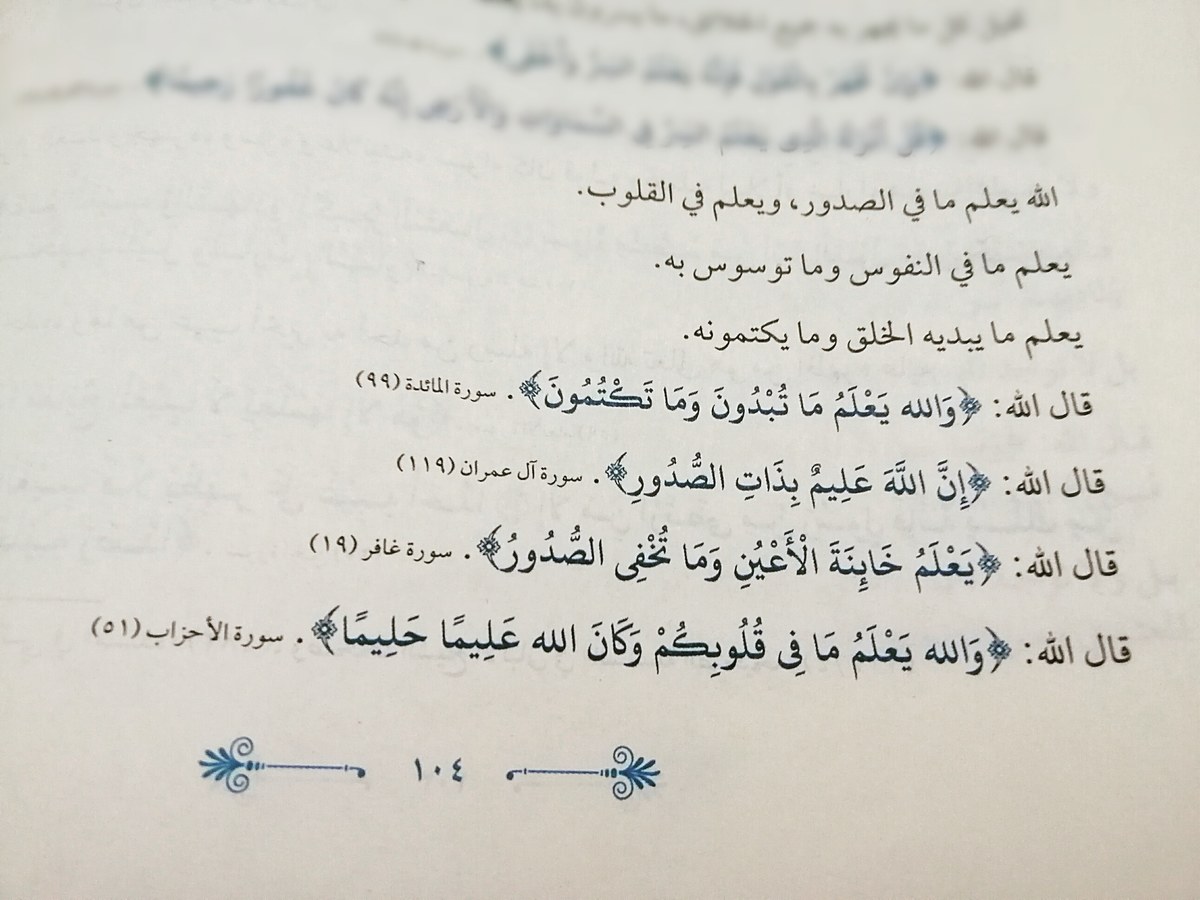 قال الله: ﴿قُلْ أَنْزَلَهُ الَّذِي يَعْلَمُ السِّرَّ فِي السَّمَاوَاتِ وَالْأَرْضِ إِنَّهُ كَانَ غَفُورًا رَحِيمًا﴾
الله يعلم ما في الصدور، ويعلم في القلوب.
يعلم ما في النفوس وما توسوس به.
يعلم ما يبديه الخلق وما يكتمونه.
قال الله: ﴿وَالله يَعْلَمُ مَا تُبْدُونَ وَمَا تَكْتُمُونَ﴾. سورة المائدة (٩٩)
قال الله: ﴿إِنَّ اللَّهَ عَلِيمٌ بِذَاتِ الصُّدُورِ﴾. سورة آل عمران (١١٩)
قال الله: ﴿يَعْلَمُ خَايِنَةَ الْأَعْيُنِ وَمَا تُخْفِى الصُّدُورُ﴾. سورة غافر (١٩)
قال الله: ﴿وَالله يَعْلَمُ مَا فِى قُلُوبِكُمْ وَكَانَ الله عَلِيمًا حَلِيمًا﴾. سورة الأحزاب (٥١)
١٠٤